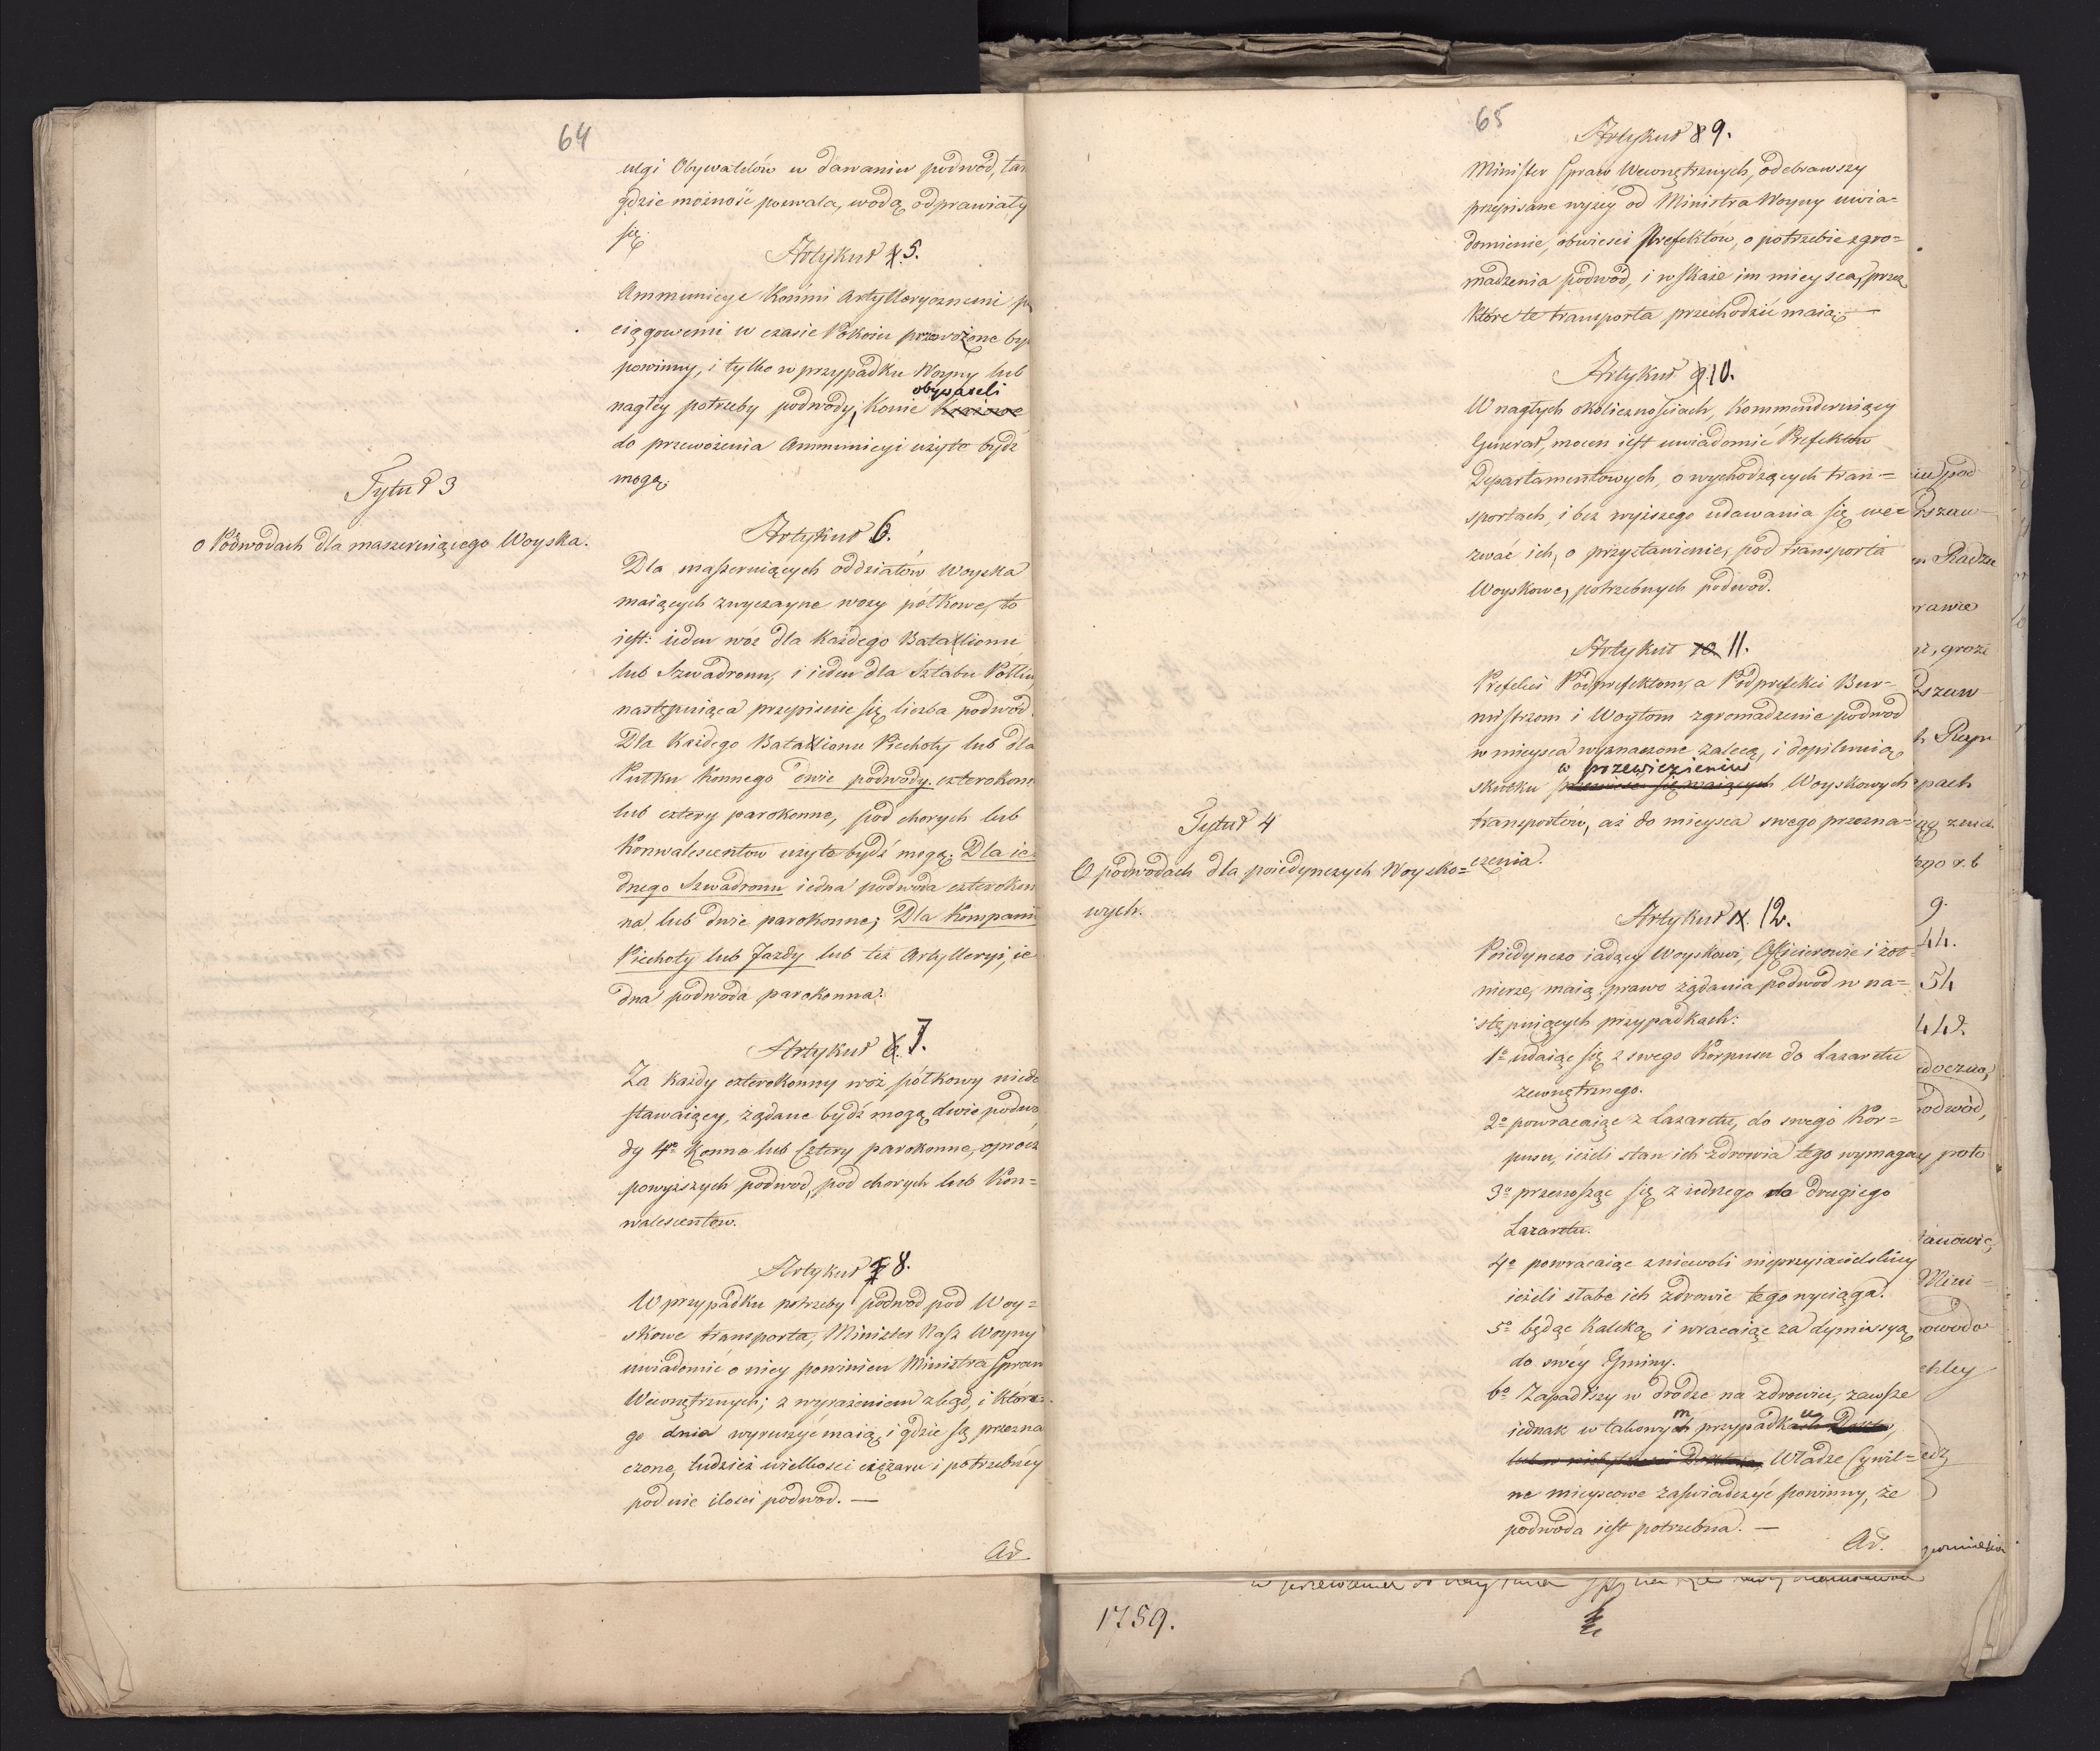 64
ulgi Obywatelów w dawaniu podwód, tam
gdzie możność pozwala, wodą odprawiały
się.
Artykuł 4 5.
Ammunicye końmi Artylleryczneni po
ciągowemi w czasie Pokoiu przewożone być
powinny, i tylko w przypadku Woyny lub
obywateli
nagłey potrzeby podwody, konie Kraiowe
do przewożenia Ammunicyi użyte bydź
mogą.
Tytuł 3
o Podwodach dla maszeruiącego Woyska.
Artykuł 6.
Dla maszeruiących oddziałów Woyska
maiących zwyczayne wozy półkowe, to
iest: ieden wóz dla każdego Batallionu
lub Szwadronu, i ieden dla Sztabu Półku
następuiąca przepisuie się liczba podwód.
Dla każdego Batallionu Piechoty lub dla
Pułku konnego dwie podwody czterokonne
lub cztery parokonne, pod chorych lub
Konwalescentow użyte bydź mogą; Dla ie=
dnego Szwadronu iedna podwoda czterokon
na lub dwie parokonne; Dla Kompanii
Piechoty lub Jazdy lub też Artylleryi, ie
dna podwoda parokonna.
Artykuł 6. 7.
Za każdy czterokonny wóz półkowy niedo
stawaiący, żądane bydź mogą dwie podwo
dy 4o konne lub Cztery parokonne, oprócz
powyższych podwod, pod chorych lub Kon=
walescentow.
Artykuł 7 8.
W przypadku potrzeby podwod pod Woy=
skowe transporta, Minister Nasz Woyny
uwiadomić o niey powinien Ministra Spraw
Wewnętrznych; z wyrażeniem zkąd, i które=
go dnia wyruszyć maią, i gdzie są przezna
czone, tudzież wielkości ciężaru i potrzebney
pod nie ilości podwod. —
Ad.
65
Artykuł 8 9.
Minister Spraw Wewnętrznych, odebrawszy
przepisane wyżey od Ministra Woyny uwia=
domienie, obwieści Prefektow, o potrzebie zgro=
madzenia podwod, i wskaże im mieysca, przez
które te transporta przechodzić maią. —
Artykuł 9. 10.
W nagłych okolicznościach, Kommenderuiący
Generał, mocen iest uwiadomić Prefektow
Departamentowych, o wychodzących tran=
sportach, i bez wyższego udawania się wez=
zwać ich, o przystawienie, pod transporta
Woyskowe, potrzebnych podwod.
Artykuł 10 11.
Prefekci Podprefektom, a Podprefekci Bur=
mistrzom i Woytom zgromadzenie podwod
w mieysca wyznaczone zalecą, i dopilnuią
w przewiezieniu
skutku Woyskowych
transportów, aż do mieysca swego przezna=
czenia.
Tytuł 4
O podwodach dla poiedynczych Woysko=
wych.
Artykuł 11. 12.
Poiedynczo iadący Woyskowi, Officierowie i żoł=
nierze, maią prawo żądania podwod w na=
stępuiących przypadkach:
1o udaiąc się z swego Korpusu do Lazaretu
zewnętrznego.
2o powracaiąc z Lazaretu, do swego Kor=
pusu, ieżeli stan ich zdrowia tego wymaga
3o przenosząc się z iednego do drugiego
Lazaretu.
4o powracaiąc z niewoli nieprzyiacielskiey
ieżeli słabe ich zdrowie tego wyciąga.
5o będąc kaleką i wracaiąc za dymissyą
do swéy Gminy.
6o Zapadłszy w drodze na zdrowiu; zawsze
iednak w takowym przypadku
Władze Cywil=
ne mieyscowe zaświadczyć powinny, że
podwoda iest potrzebna. —
Ad.
9.
44.
54
442.
1759.